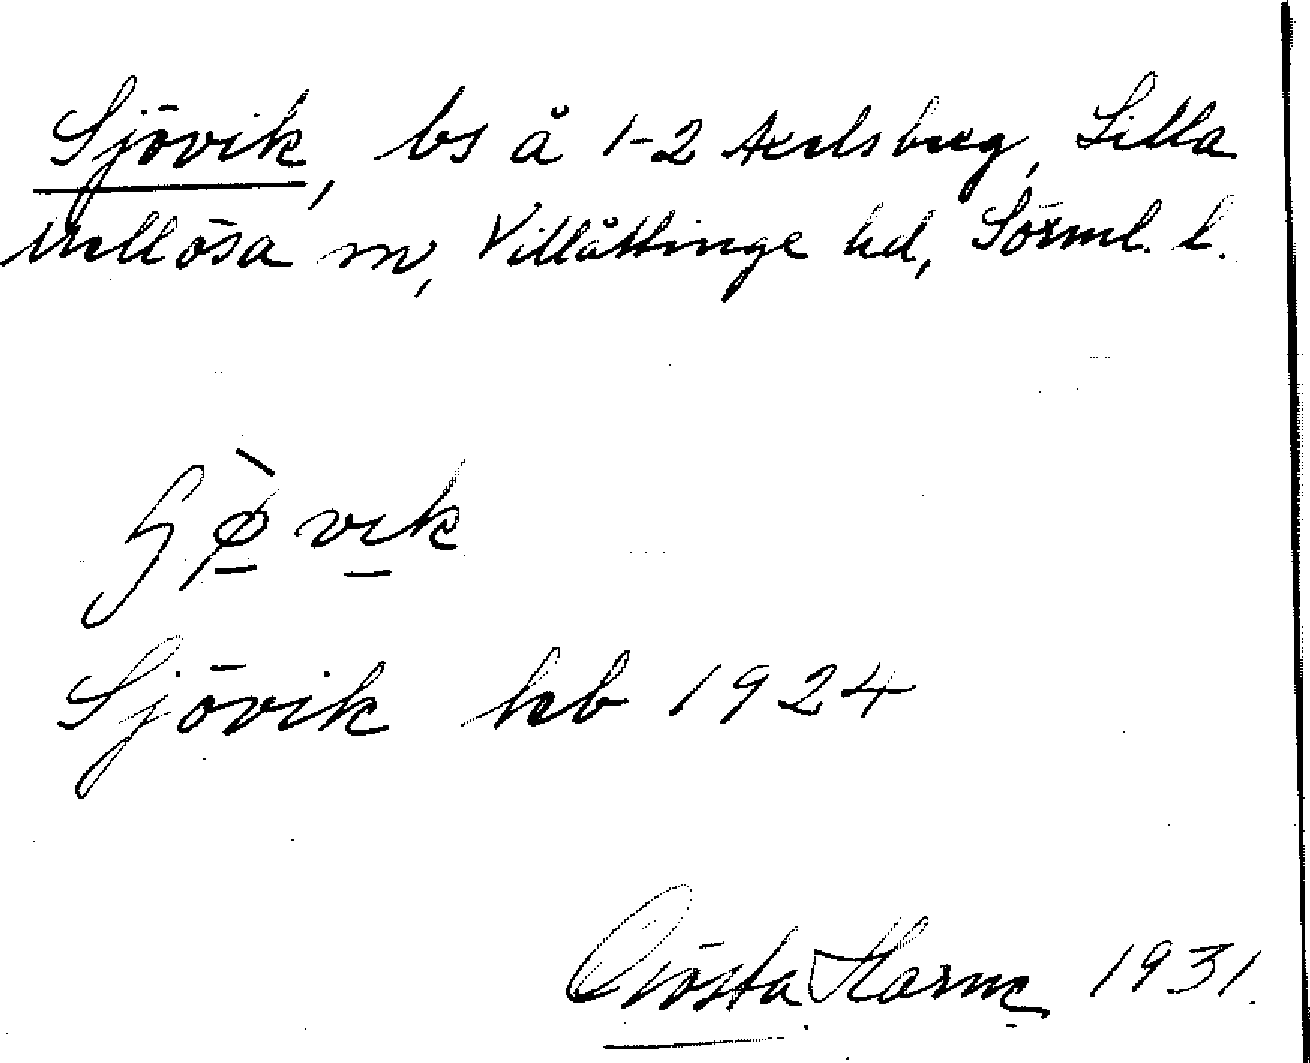 Sjövik, bs å 1-2 Axelsberg, Lilla
Mellösa sn, Villåttinge hd, Sörml. l.
Sjövik kb 1924
Gösta Harne 1931.